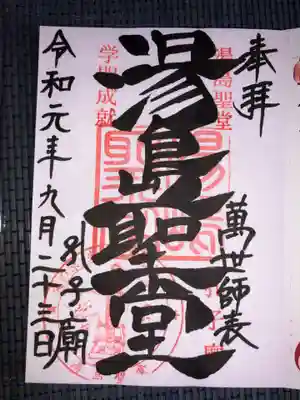 奉拝
萬世師表
湯島聖堂
湯島聖堂
学問成就
孔子廟
令和元年九月二十三日